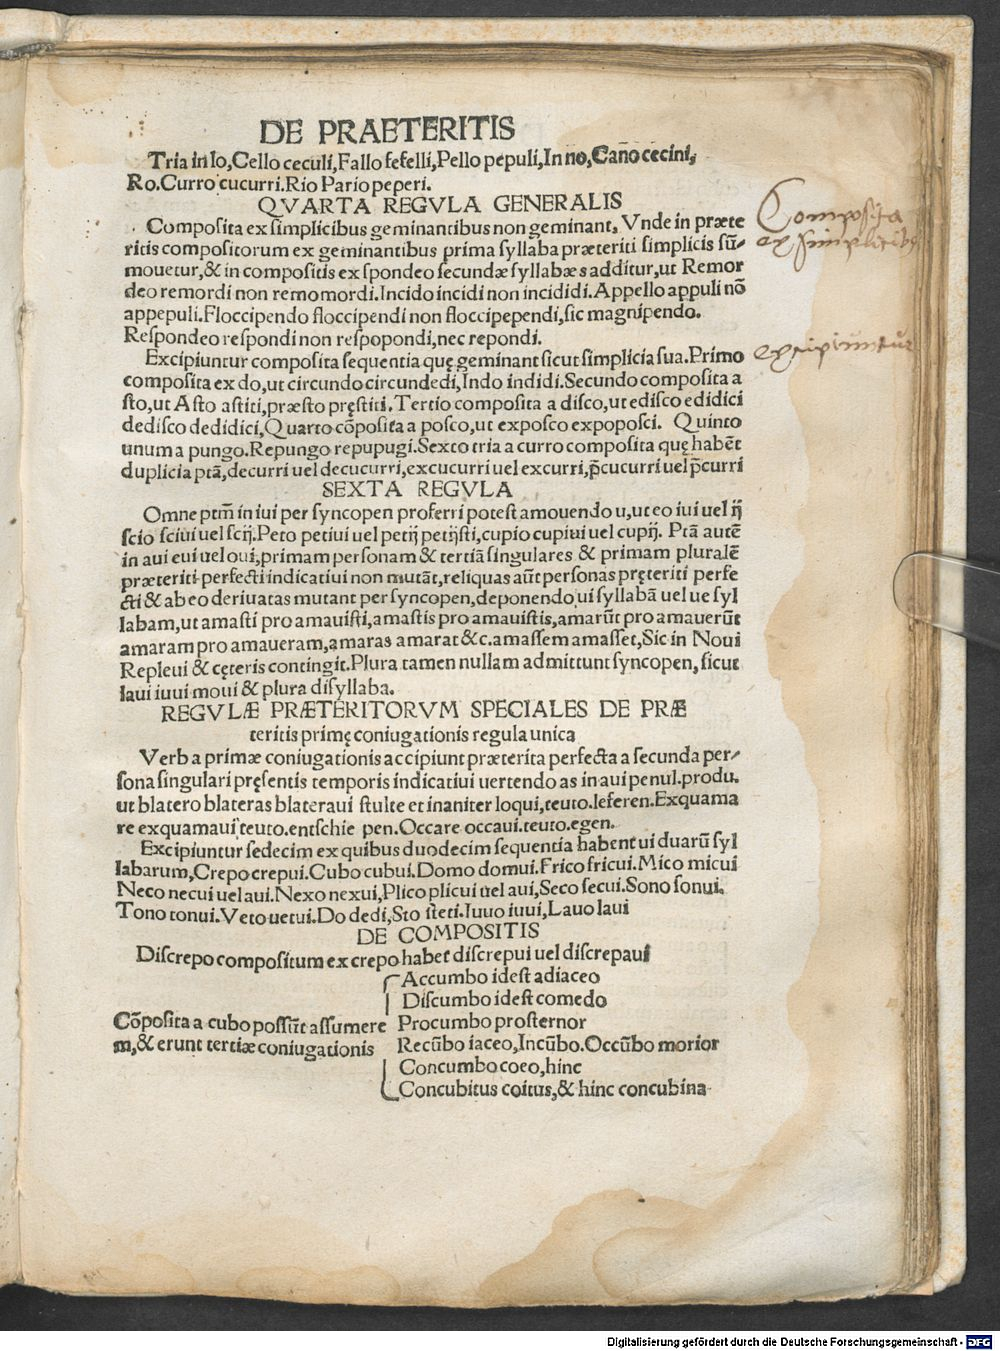 DE PRAETERITIS
Tria in lo, Cello ceculi, Fallo fefelli, Pello pepuli, In no, Cano cecini,
Ro. Curro cucurri. Rio Pario peperi.
QVARTA REGVLA GENERALIS
Composita ex simplicibus geminantibus non geminant, Vnde in præte
ritis compositorum ex geminantibus prima syllaba præteriti simplicis sū-
mouetur, & in compositis ex spondeo secundæ syllabæ s additur, ut Remor
deo remordi non remomordi. Incido incidi non incididi. Appello appuli nō
appepuli. Floccipendo floccipendi non floccipependi, sic magnipendo.
Respondeo respondi non respopondi, nec repondi.
Excipiuntur composita sequentia quę geminant sicut simplicia sua. Primo
composita ex do, ut circundo circundedi, Indo indidi. Secundo composita a
sto, ut Asto astiti, præsto pręstiti. Tertio composita a disco, ut edisco edidici
dedisco dedidici, Quarto cōposita a posco, ut exposco expoposci. Quinto
unum a pungo. Repungo repupugi. Sexto tria a curro composita quę habēt
duplicia ptā, decurri uel decucurri, excucurri uel excurri, p̄cucurri uel p̄curri
SEXTA REGVLA
Omne ptm̄ in iui per syncopen proferri potest amouendo u, ut eo iui uel ij
scio sciui uel scij. Peto petiui uel petij petijsti, cupio cupiui uel cupij. Ptā autē
in aui eui uel oui, primam personam & tertiā singulares & primam pluralē
præteriti perfecti indicatiui non mutāt, reliquas aūt personas pręteriti perfe
cti & ab eo deriuatas mutant per syncopen, deponendo ui syllabā uel ue syl
labam, ut amasti pro amauisti, amastis pro amauistis, amarūt pro amauerūt
amaram pro amaueram, amaras amarat &c. amassem amasset, Sic in Noui
Repleui & cęteris contingit. Plura tamen nullam admittunt syncopen, sicut
laui iuui moui & plura disyllaba.
REGVLÆ PRÆTERITORVM SPECIALES DE PRÆ
teritis primę coniugationis regula unica
Verba primæ coniugationis accipiunt præterita perfecta a secunda per-
sona singulari pręsentis temporis indicatiui uertendo as in aui penul. produ.
ut blatero blateras blateraui stulte et inaniter loqui, teuto. leferen. Exquama
re exquamaui teuto. entschie pen. Occare occaui. teuto. egen.
Excipiuntur sedecim ex quibus duodecim sequentia habent ui duarū syl
labarum, Crepo crepui. Cubo cubui. Domo domui. Frico fricui. Mico micui
Neco necui uel aui. Nexo nexui, Plico plicui uel aui, Seco secui. Sono sonui.
Tono tonui. Veto uetui. Do dedi, Sto steti. Iuuo iuui, Lauo laui
DE COMPOSITIS
Discrepo compositum ex crepo habet discrepui uel discrepaui
Accumbo idest adiaceo
Discumbo idest comedo
Cōposita a cubo possūt assumere Procumbo prosternor
m, & erunt tertiæ coniugationis Recūbo iaceo, Incūbo. Occūbo morior
Concumbo coeo, hinc
Concubitus coitus, & hinc concubina
Composita
ex simplicibus
excipiuntur
Digitalisierung gefördert durch die Deutsche Forschungsgemeinschaft - DFG